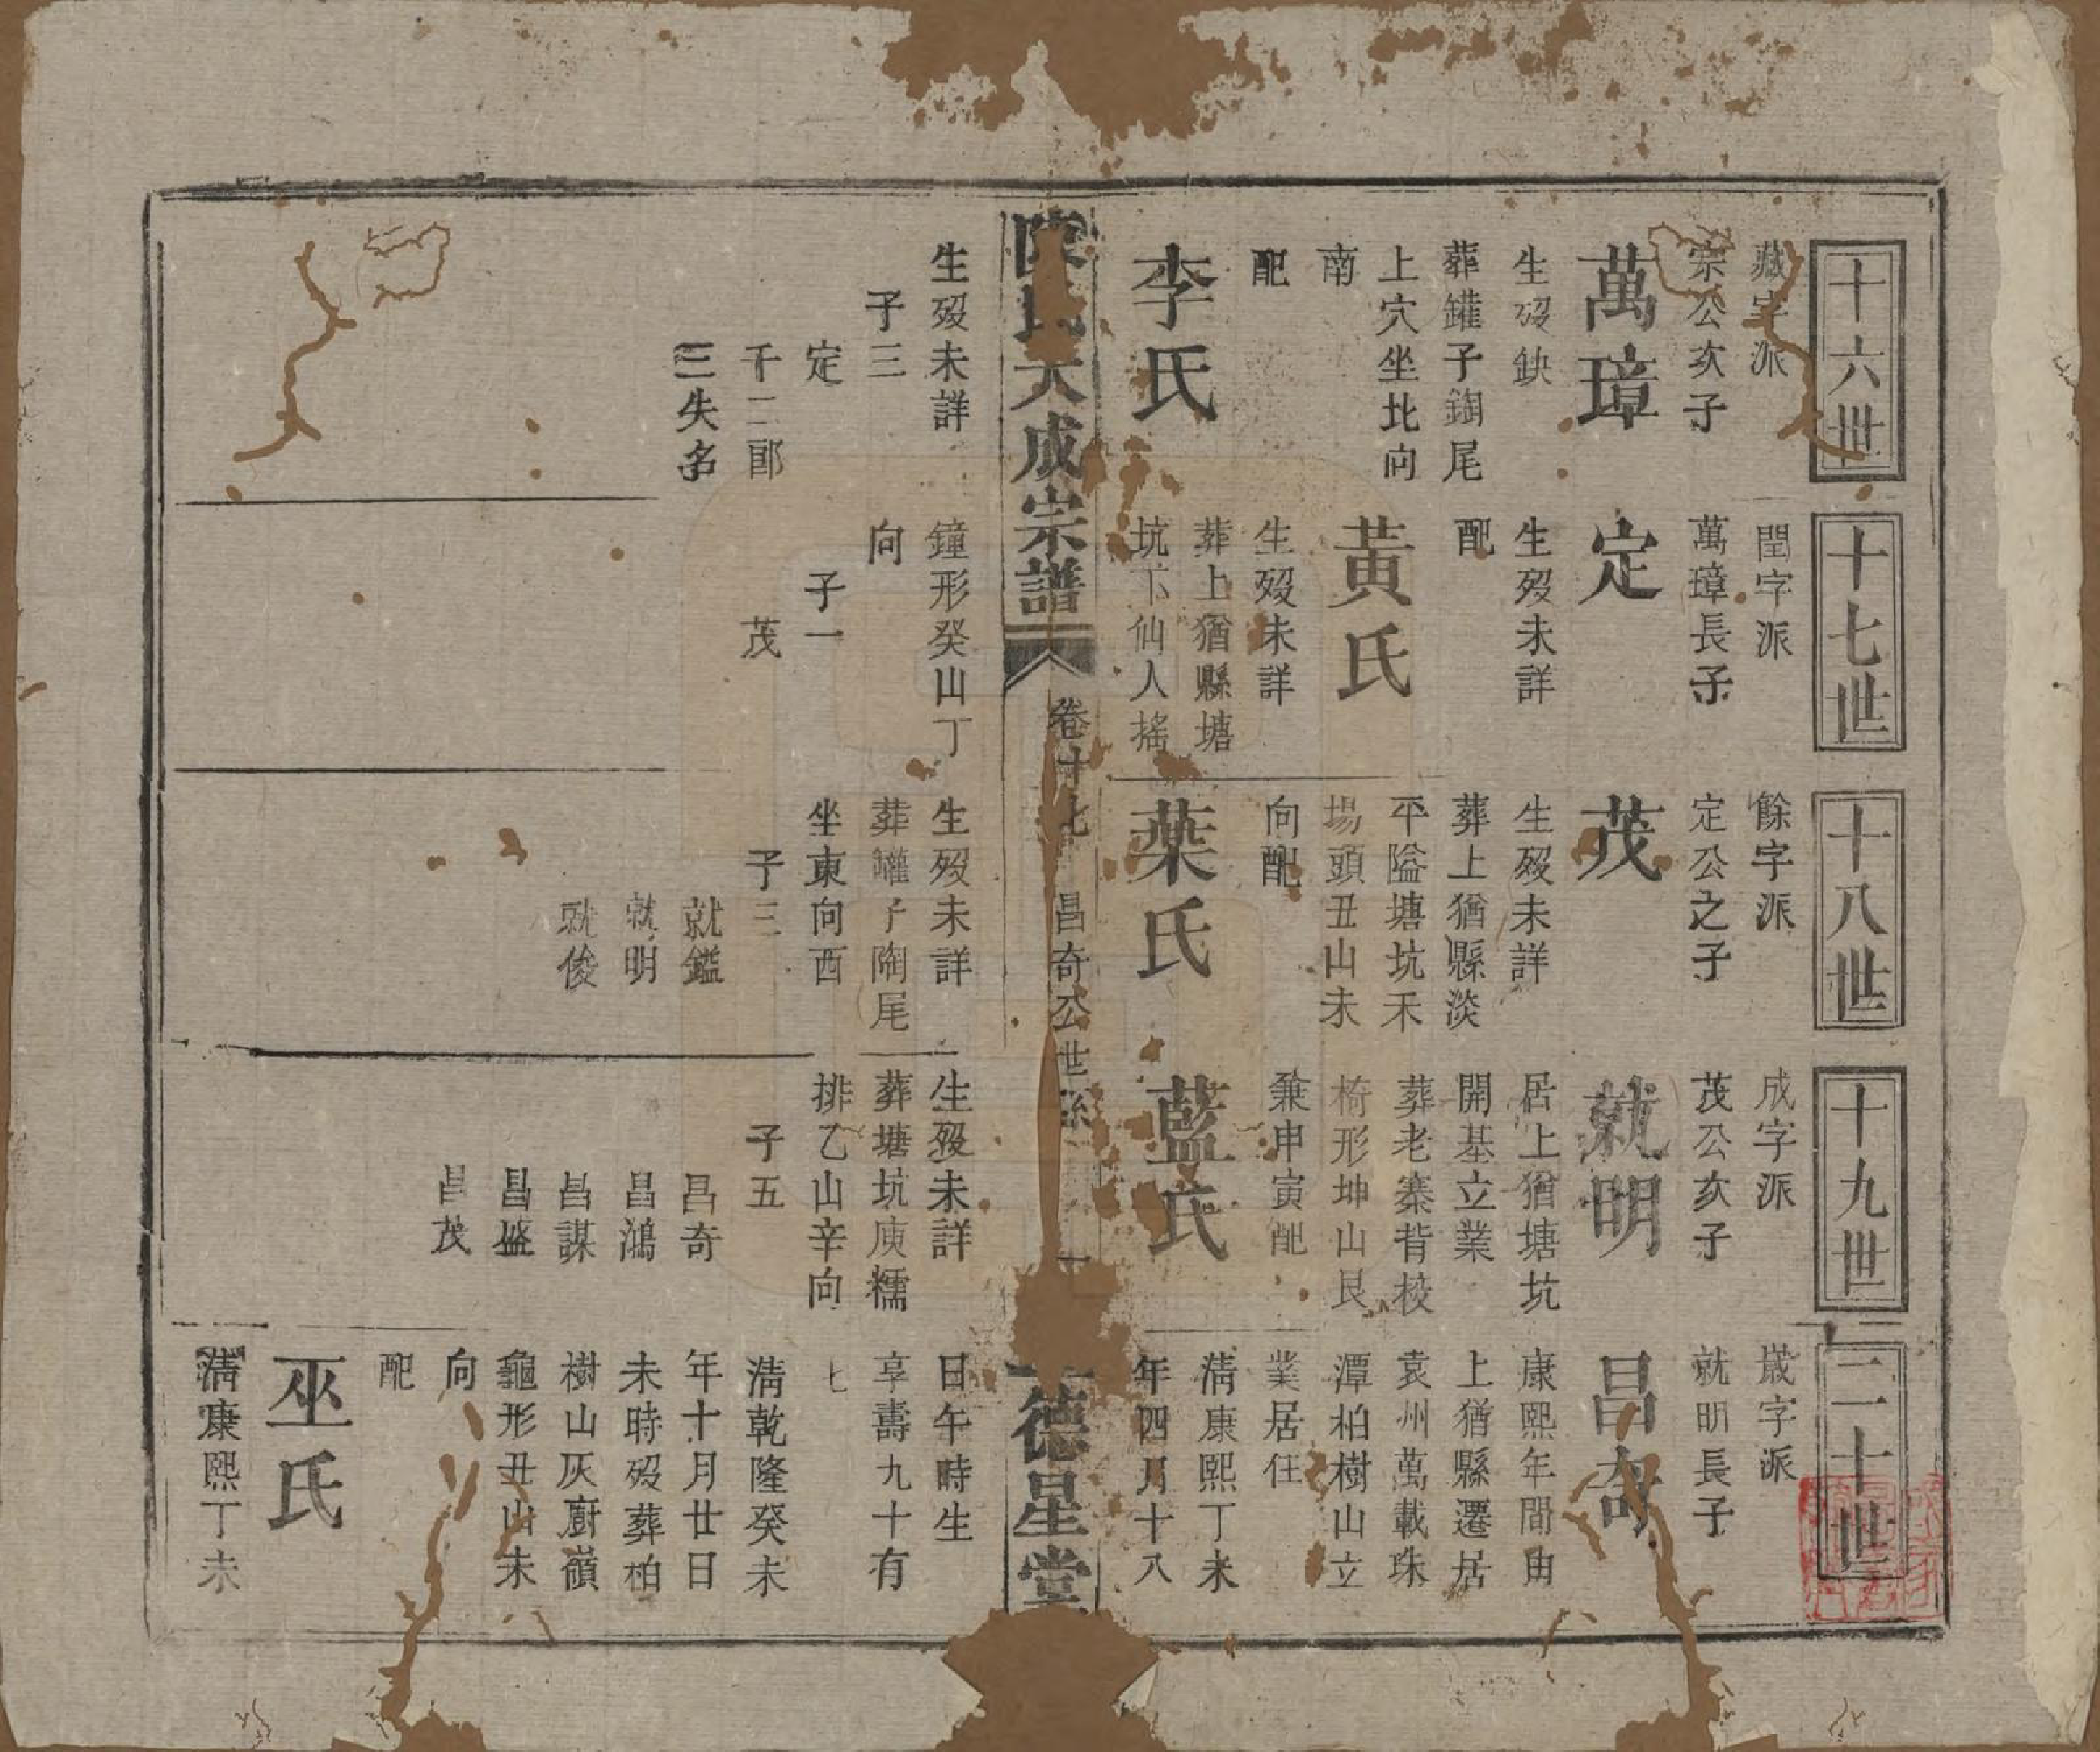 十六世
藏字派
宗公次子
萬璋
生歿缺
葬鑵子𨫼尾
上穴坐北向
南
配
李氏
生歿未詳
子三
定
千二郎
三失名
十七世
閏字派
萬璋長子
定
生歿未詳
配
黃氏
生歿未詳
葬上猶縣塘
坑下仙人搖
鐘形癸山丁
向
子一
茂
十八世
餘字派
定公之子
茂
生歿未詳
葬上猶縣淡
平隘塘坑禾
場頭丑山未
向配
葉氏
生歿未詳
葬鑵子陶尾
坐東向西
子三
就鑑
就明
就俊
十九世
成字派
茂公次子
就明
居上猶塘坑
開基立業
葬老寨背校
椅形坤山艮
兼申寅配
藍氏
生歿未詳
葬塘坑庾糯
排乙山辛向
子五
昌奇
昌鴻
昌謀
昌盛
昌茂
二十世
歲字派
就明長子
昌奇
康熙年間由
上猶縣遷居
袁州萬載珠
潭柏樹山立
業居住
清康熙丁未
年四月十八
日午時生
享壽九十有
七
清乾隆癸未
年十月廿日
未時歿葬柏
樹山灰廚嶺
龜形丑山未
向
配
巫氏
清康熙丁未
陳氏大成宗譜
卷十七
昌奇公世系
一
德星堂